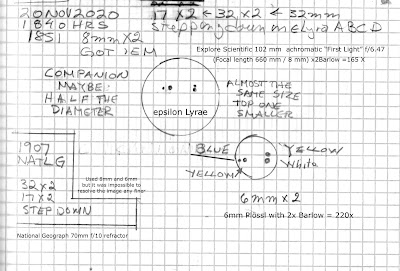 20 NOV 2020
17 X2 ← 32 X2 ← 32mm
1840 HRS
stepping down on e Lyra A B C D
1851 8mm X2
GOT 'EM
Explore Scientific 102 mm achromatic "First Light" f/6.47
(Focal length 660 mm / 8 mm) x2Barlow =165 X
COMPANION
MAYBE
HALF THE
DIAMETER
epsilon Lyrae
ALMOST THE
SAME SIZE
TOP ONE
SMALLER
1907
NATLG
32X2
17X2
STEP DOWN
Used 8mm and 6mm
but it was impossible to
resolve the image any finer
BLUE
YELLOW
YELLOW
White
6mm X2
6mm Plössl with 2x Barlow = 220x
National Geograph 70mm f/10 refractor